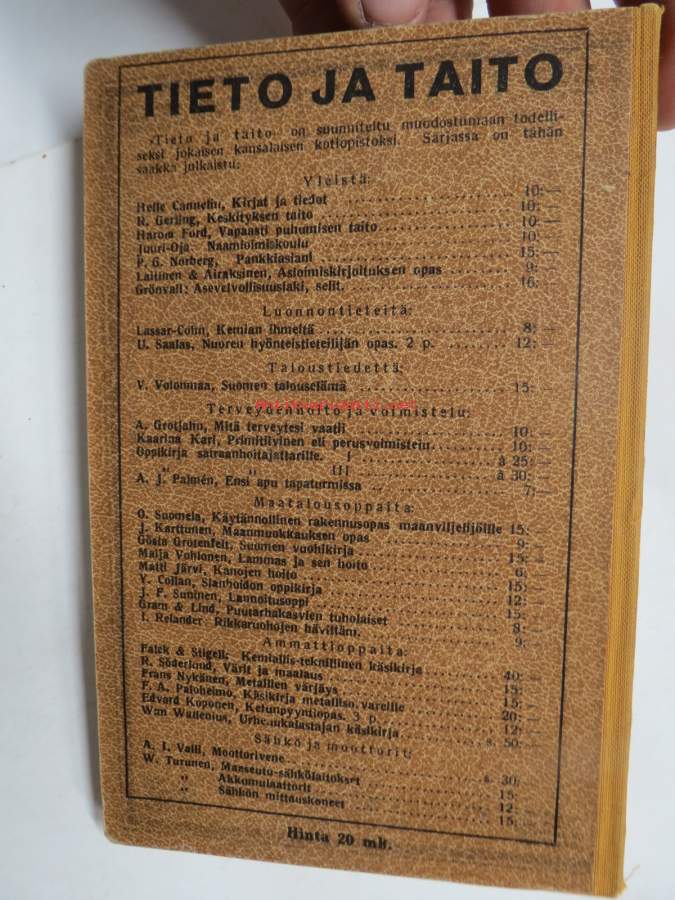 TIETO JA TAITO
„Tieto ja taito" on suunniteltu muodostumaan todelli-
seksi jokaisen kansalaisen kotiopistoksi. Sarjassa on tähän
saakka julkaistu:
Yleistä:
Helle Cannelin, Kirjat ja tiedot 10:—
R. Gerling, Keskityksen taito 10:—
Harold Ford, Vapaasti puhumisen taito 10:—
Juuri-Oja: Naamioimiskoulu 10:
P. G. Norberg, Pankkiasiani 15:—
Laitinen & Airaksinen, Asioimiskirjoituksen opas 9:—
Grönvall: Asevelvollisuuslaki, selit. 16:—
Luonnontieteitä:
Lassar-Cohn, Kemian ihmeitä 8:—
U. Saalas, Nuoren hyönteistieteilijän opas. 2 p. 12:—
Taloustiedettä:
V. Voionmaa, Suomen talouselämä 15:
Terveydenhoito ja voimistelu:
A. Grotjahn, Mitä terveytesi vaatii 10:—
Kaarina Kari, Primitiivinen eli perusvoimistelu 10:—
Oppikirja sairaanhoitajattarille. I à 25:—
„ „ III à 30:—
A. J. Palmén, Ensi apu tapaturmissa 7:—
Maatalousoppaita:
O. Suomela, Käytännöllinen rakennusopas maanviljelijöille 15:
J. Karttunen, Maanmuokkauksen opas 9:—
Gösta Grotenfelt, Suomen vuohikirja 15:
Maija Vohlonen, Lammas ja sen hoito 6:
Matti Järvi, Kanojen hoito 15:
Y. Collan, Sianhoidon oppikirja 12:
J. F. Suninen, Lannoitusoppi 15:
Gram & Lind, Puutarhakasvien tuholaiset 8:
I. Relander Rikkaruohojen hävittäm. 9:
Ammattioppaita:
Falck & Stigell: Kemiallis-teknillinen käsikirja 40:—
R. Söderlund, Värit ja maalaus 15:
Frans Nykänen, Metallien värjäys 15:
F. A. Paloheimo, Käsikirja metallisorvareille 20:
Edvard Koponen, Ketunpyyntiopas. 3 p. 12:
Wan Wallenius, Urheilukalastajan käsikirja s. 50:
Sähkö ja moottorit:
A. I. Valli, Moottorivene s. 30:
W. Turunen, Maaseutu-sähkölaitokset 15:
„ Akkumulaattorit 12:
„ Sähkön mittauskoneet 15:
Hinta 20 mk.